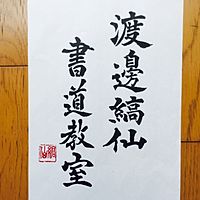 渡邊縞仙
書道教室